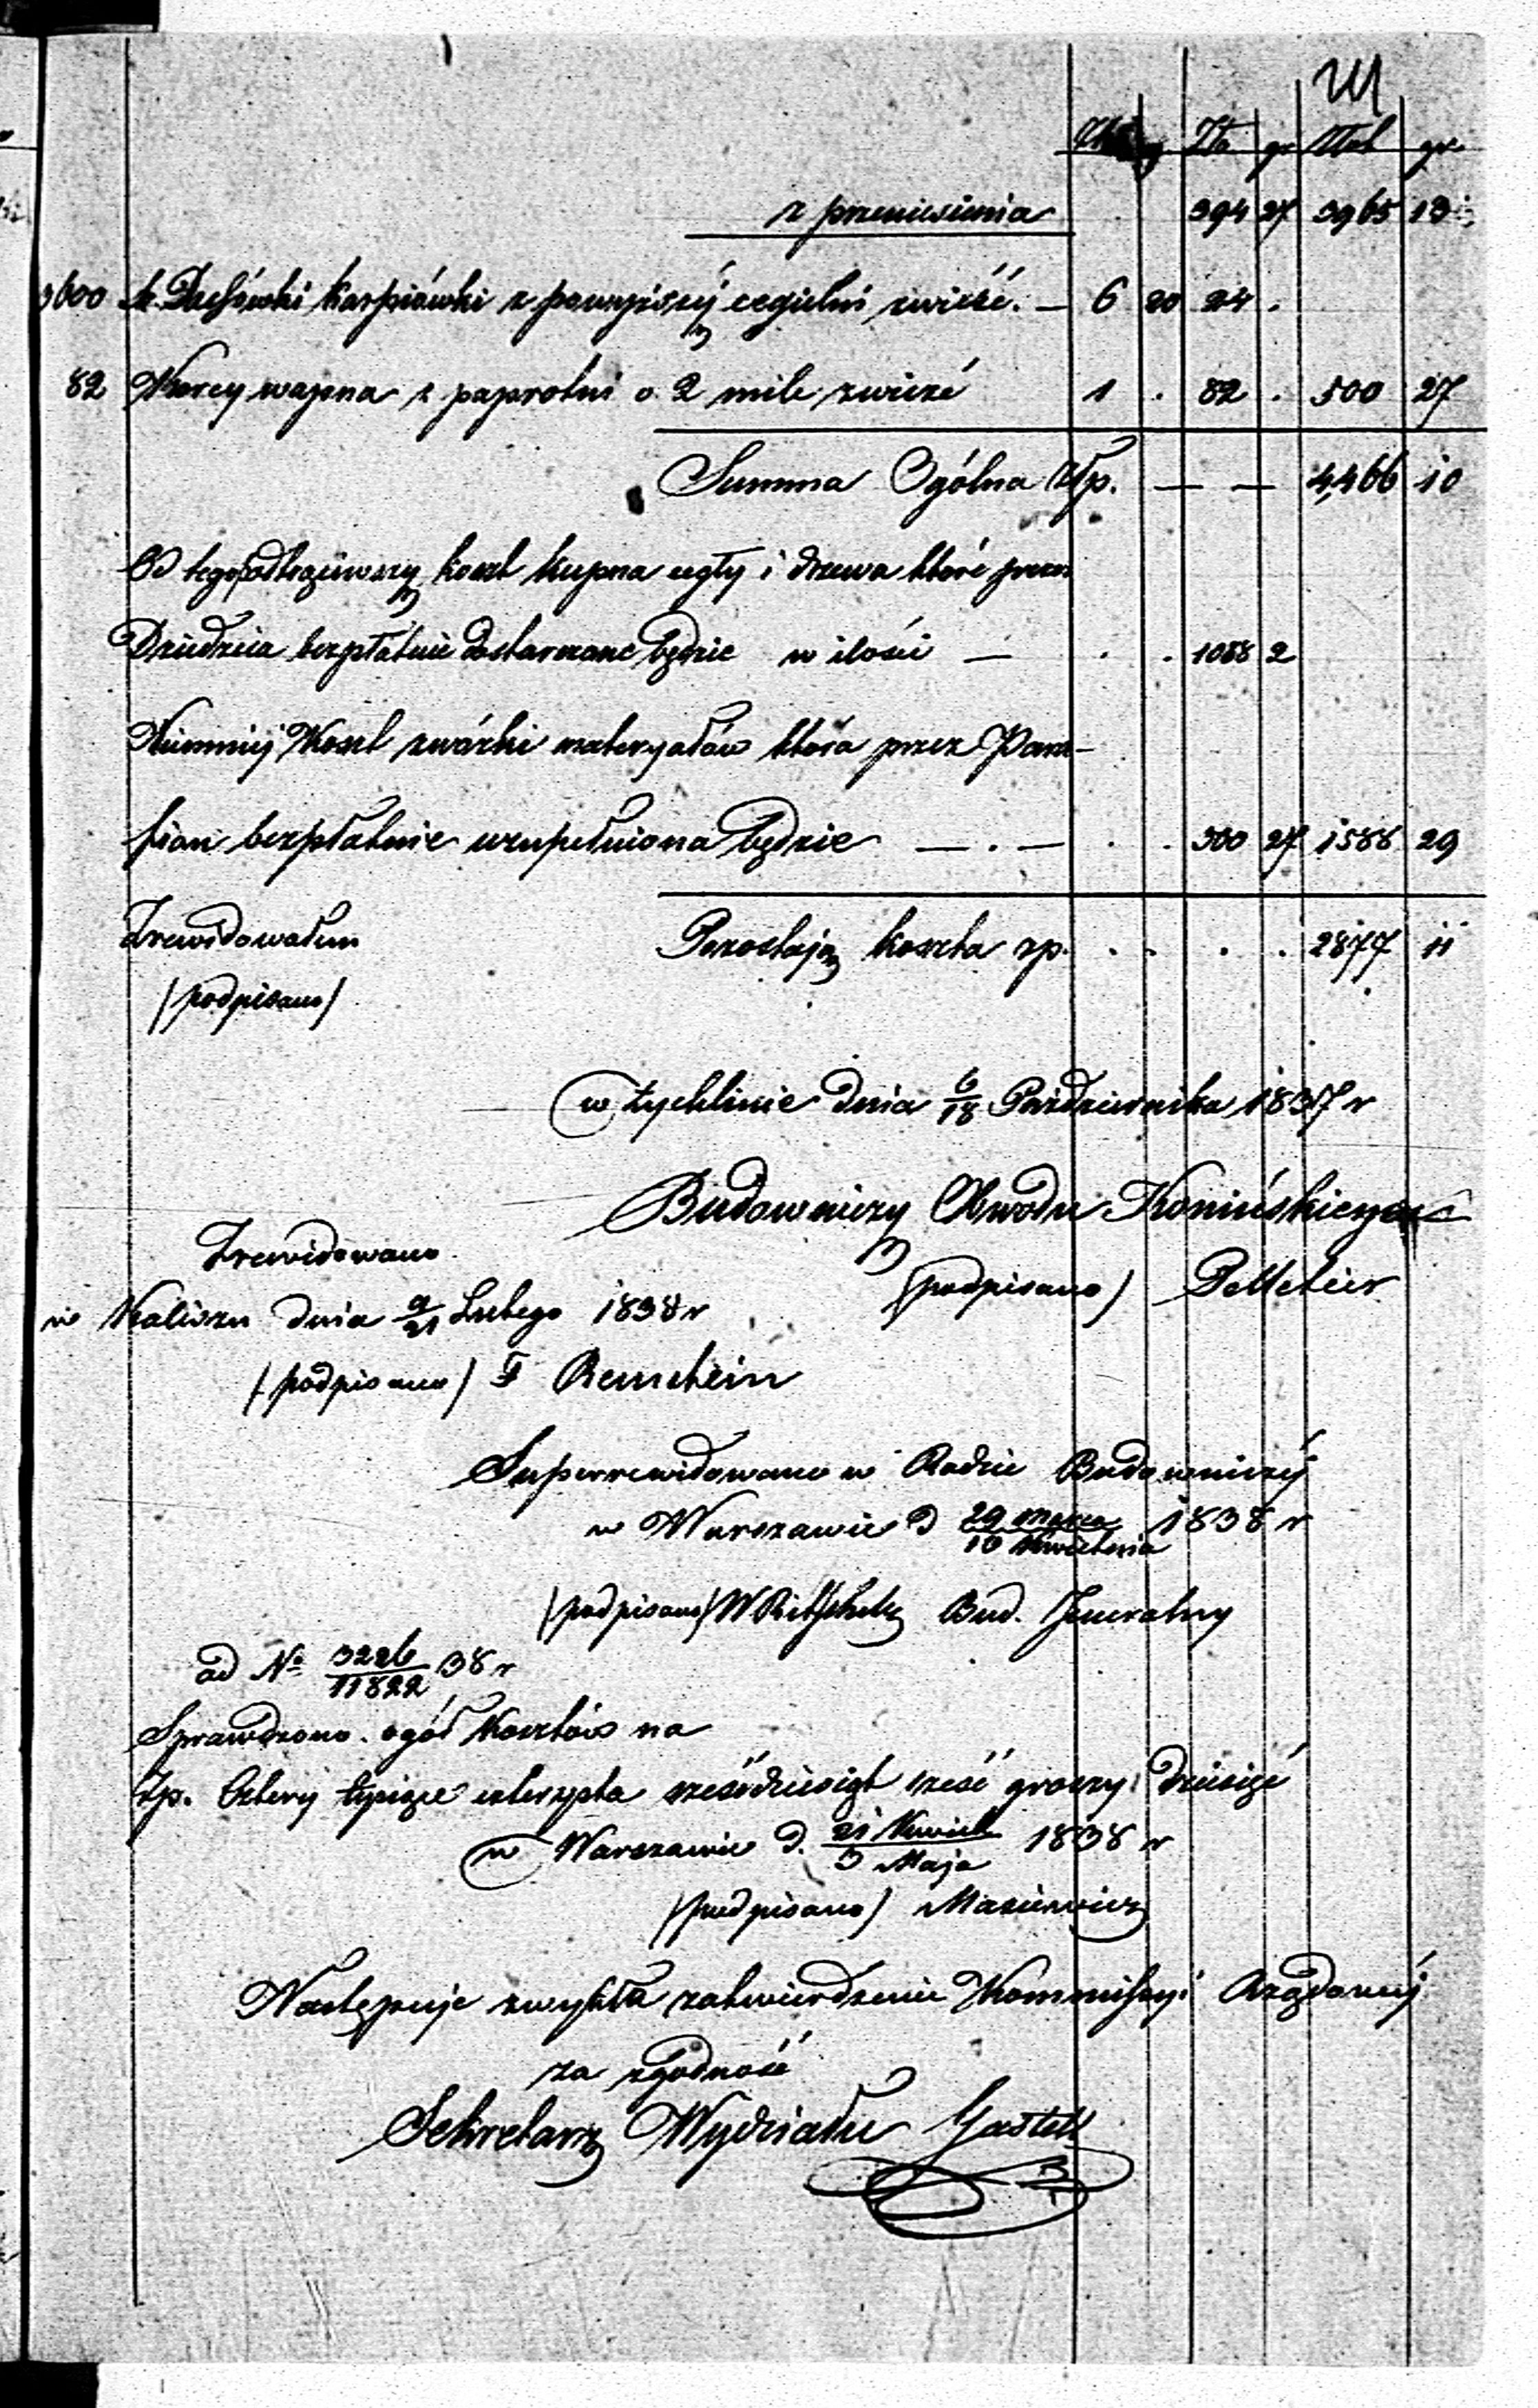 Złp gr Złp gr
z przeniesienia 394 27 3965 13
3600 Dachówki karpiówki z powyższej cegielni zwieść. — 6 20 24 .
82 Korcy wapna z paprotni o 2 mile zwieźć 1 . 82 . 500 27
Summa Ogólna Złp. — — 4,466 10
Od tego odtrąciwszy koszt kupna cegły i drzewa które przez
Dziedzica bezpłatnie dostarczane będzie w ilości — . . 1088 2
Niemniej Koszt zwózki materyałów która przez Para-
fian bezpłatnie uzupełniona będzie — . — . . 500 27 1588 29
Zrewidowałem Pozostają koszta zp. . . . . 2877 11
/podpisano/
w tychlinie dnia 6/18 Października 1837 r
Budowniczy Obwodu Konińskiego
Zrewidowano
(podpisano) Pelletier
w Kaliszu dnia 9/21 Lutego 1838 r
/podpisano/ F Reinstein
Superrewidowano w Radzie Budowniczéj
w Warszawie d 29 marca/10 Kwietnia 1838 r
/podpisano/ W Ritschel Bud. Jeneralny
ad No 3226/11822 38 r
Sprawdzono. ogół Kosztów na
Zp. Cztery tysiące czterysta sześćdziesiąt sześć groszy dziesięć
w Warszawie d. 21 Kwiet/3 Maja 1838 r
/podpisano/ Masiewicz
Następuje zwykłe zatwierdzenie Kommissyi Rządowéj
za zgodność
Sekretarz Wydziału Gastell